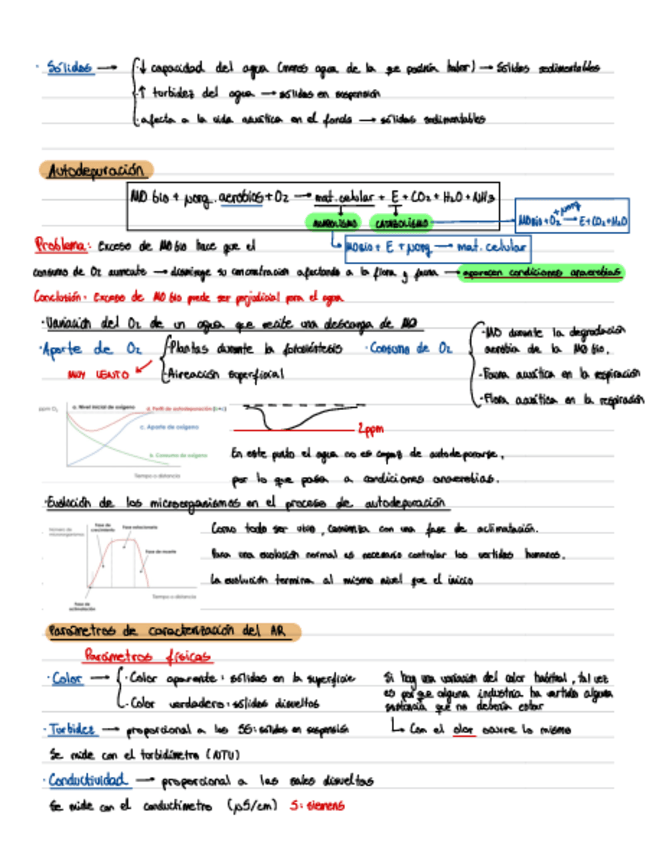 · Sólidos → ↓ capacidad del agua (menos agua de la que podría haber) → sólidos sedimentables
↑ turbidez del agua → sólidos en suspensión
· afecta a la vida acuática en el fondo → sólidos sedimentables
Autodepuración
MO bio + μorg. aerobios + O2 → mat. celular + E + CO2 + H2O + NH3
ANABOLISMO CATABOLISMO
MO bio + O2 + μorg → E + CO2 + H2O
MO bio + E + μorg → mat. celular
Problema: Exceso de MO bio hace que el
consumo de O2 aumente → disminuye su concentración afectando a la flora y fauna → aparecen condiciones anaerobias
Conclusión: Exceso de MO bio puede ser perjudicial para el agua
· Variación del O2 de un agua que recibe una descarga de MO
· Aporte de O2
MUY LENTO
Plantas durante la fotosíntesis
Aireación superficial
· Consumo de O2
· MO durante la degradación
aerobia de la MO bio.
· Fauna acuática en la respiración
· Flora acuática en la respiración
ppm O2
a. Nivel inicial de oxígeno
d. Perfil de autodepuración
c. Aporte de oxígeno
b. Consumo de oxígeno
Tiempo o distancia
2ppm
En este punto el agua no es capaz de autodepurarse,
por lo que pasa a condiciones anaerobias.
· Evolución de los microorganismos en el proceso de autodepuración
Número de
microorganismos
Fase de
crecimiento
Fase estacionaria
Fase de muerte
Fase de
aclimatación
Tiempo o distancia
Como todo ser vivo, comienza con una fase de aclimatación.
Para una evolución normal es necesario controlar los vertidos humanos.
La evolución termina al mismo nivel que el inicio
Parámetros de caracterización del AR
Parámetros físicos
· Color → · Color aparente: sólidos en la superficie
· Color verdadero: sólidos disueltos
Si hay una variación del color habitual, tal vez
es porque alguna industria ha vertido alguna
sustancia que no debería estar
↳ Con el olor ocurre lo mismo
· Turbidez → proporcional a los SS: sólidos en suspensión
Se mide con el turbidímetro (NTU)
· Conductividad → proporcional a las sales disueltas
Se mide con el conductímetro (μS/cm) S: siemens